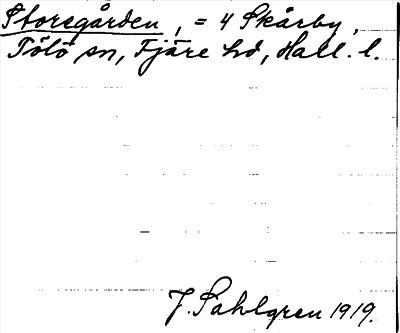 Storegården, = 4 Skårby,
Tölö sn, Fjäre hd, Hall. l.
J. Sahlgren 1919.